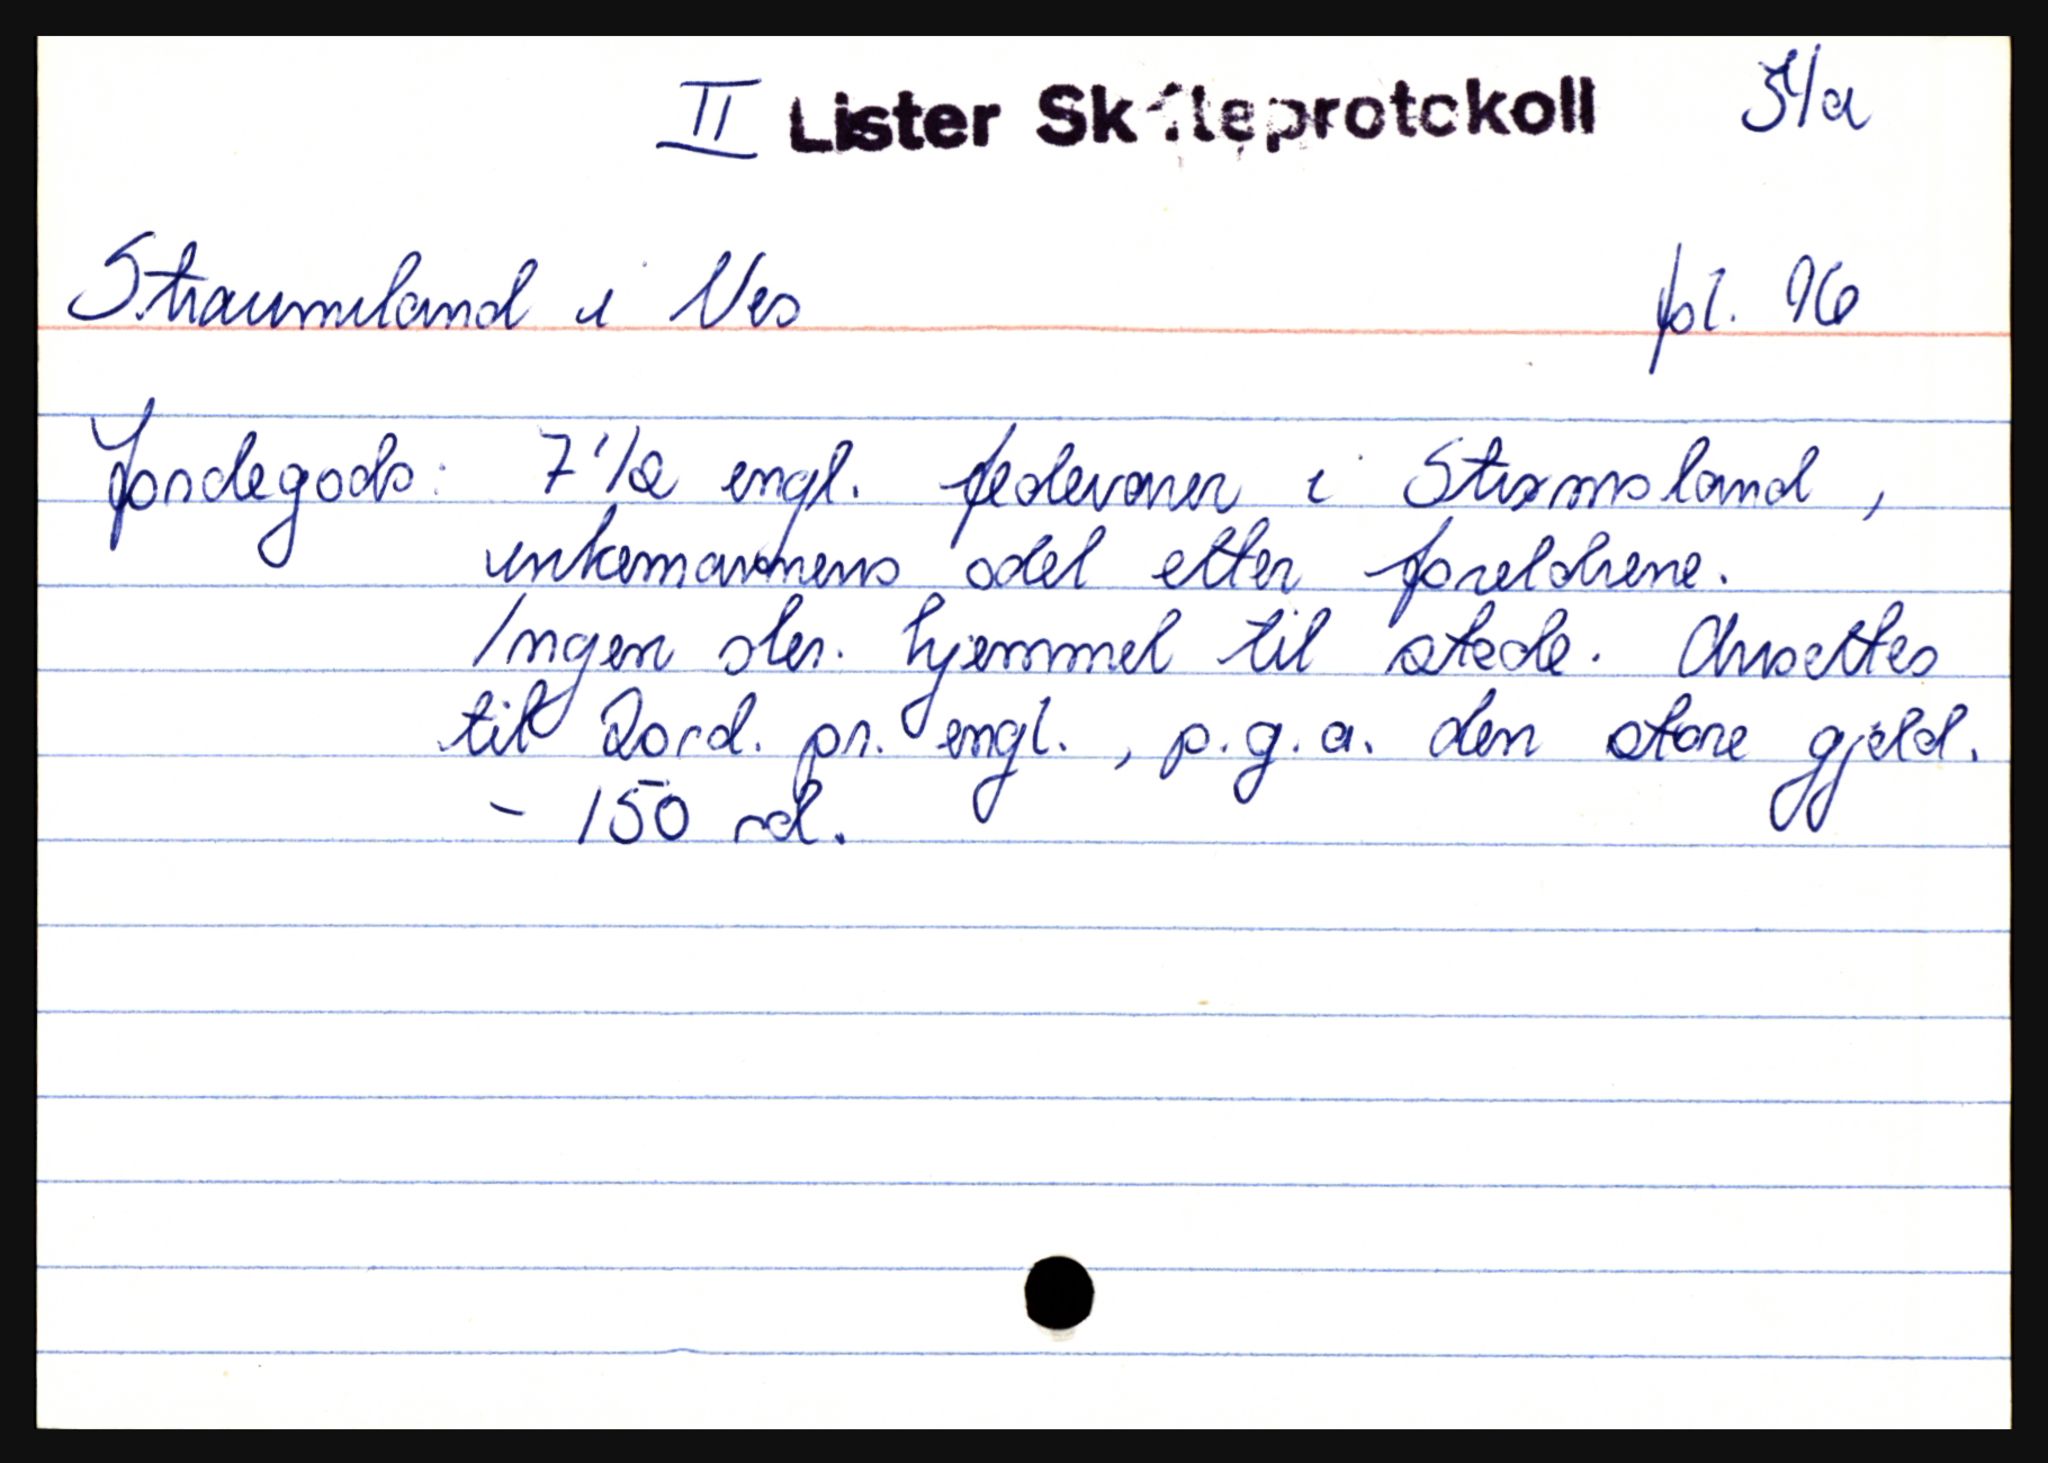 II Lister Skifteprotokoll
Straumland i Nes fol. 96
Jordegods: 7 1/2 engl. fedevarer i Strømsland,
enkemannens odel etter foreldrene.
Ingen skr. hjemmel til stede. Ansettes
til 20 rd. pr. engl., p.g.a. den store gjeld.
- 150 rd.